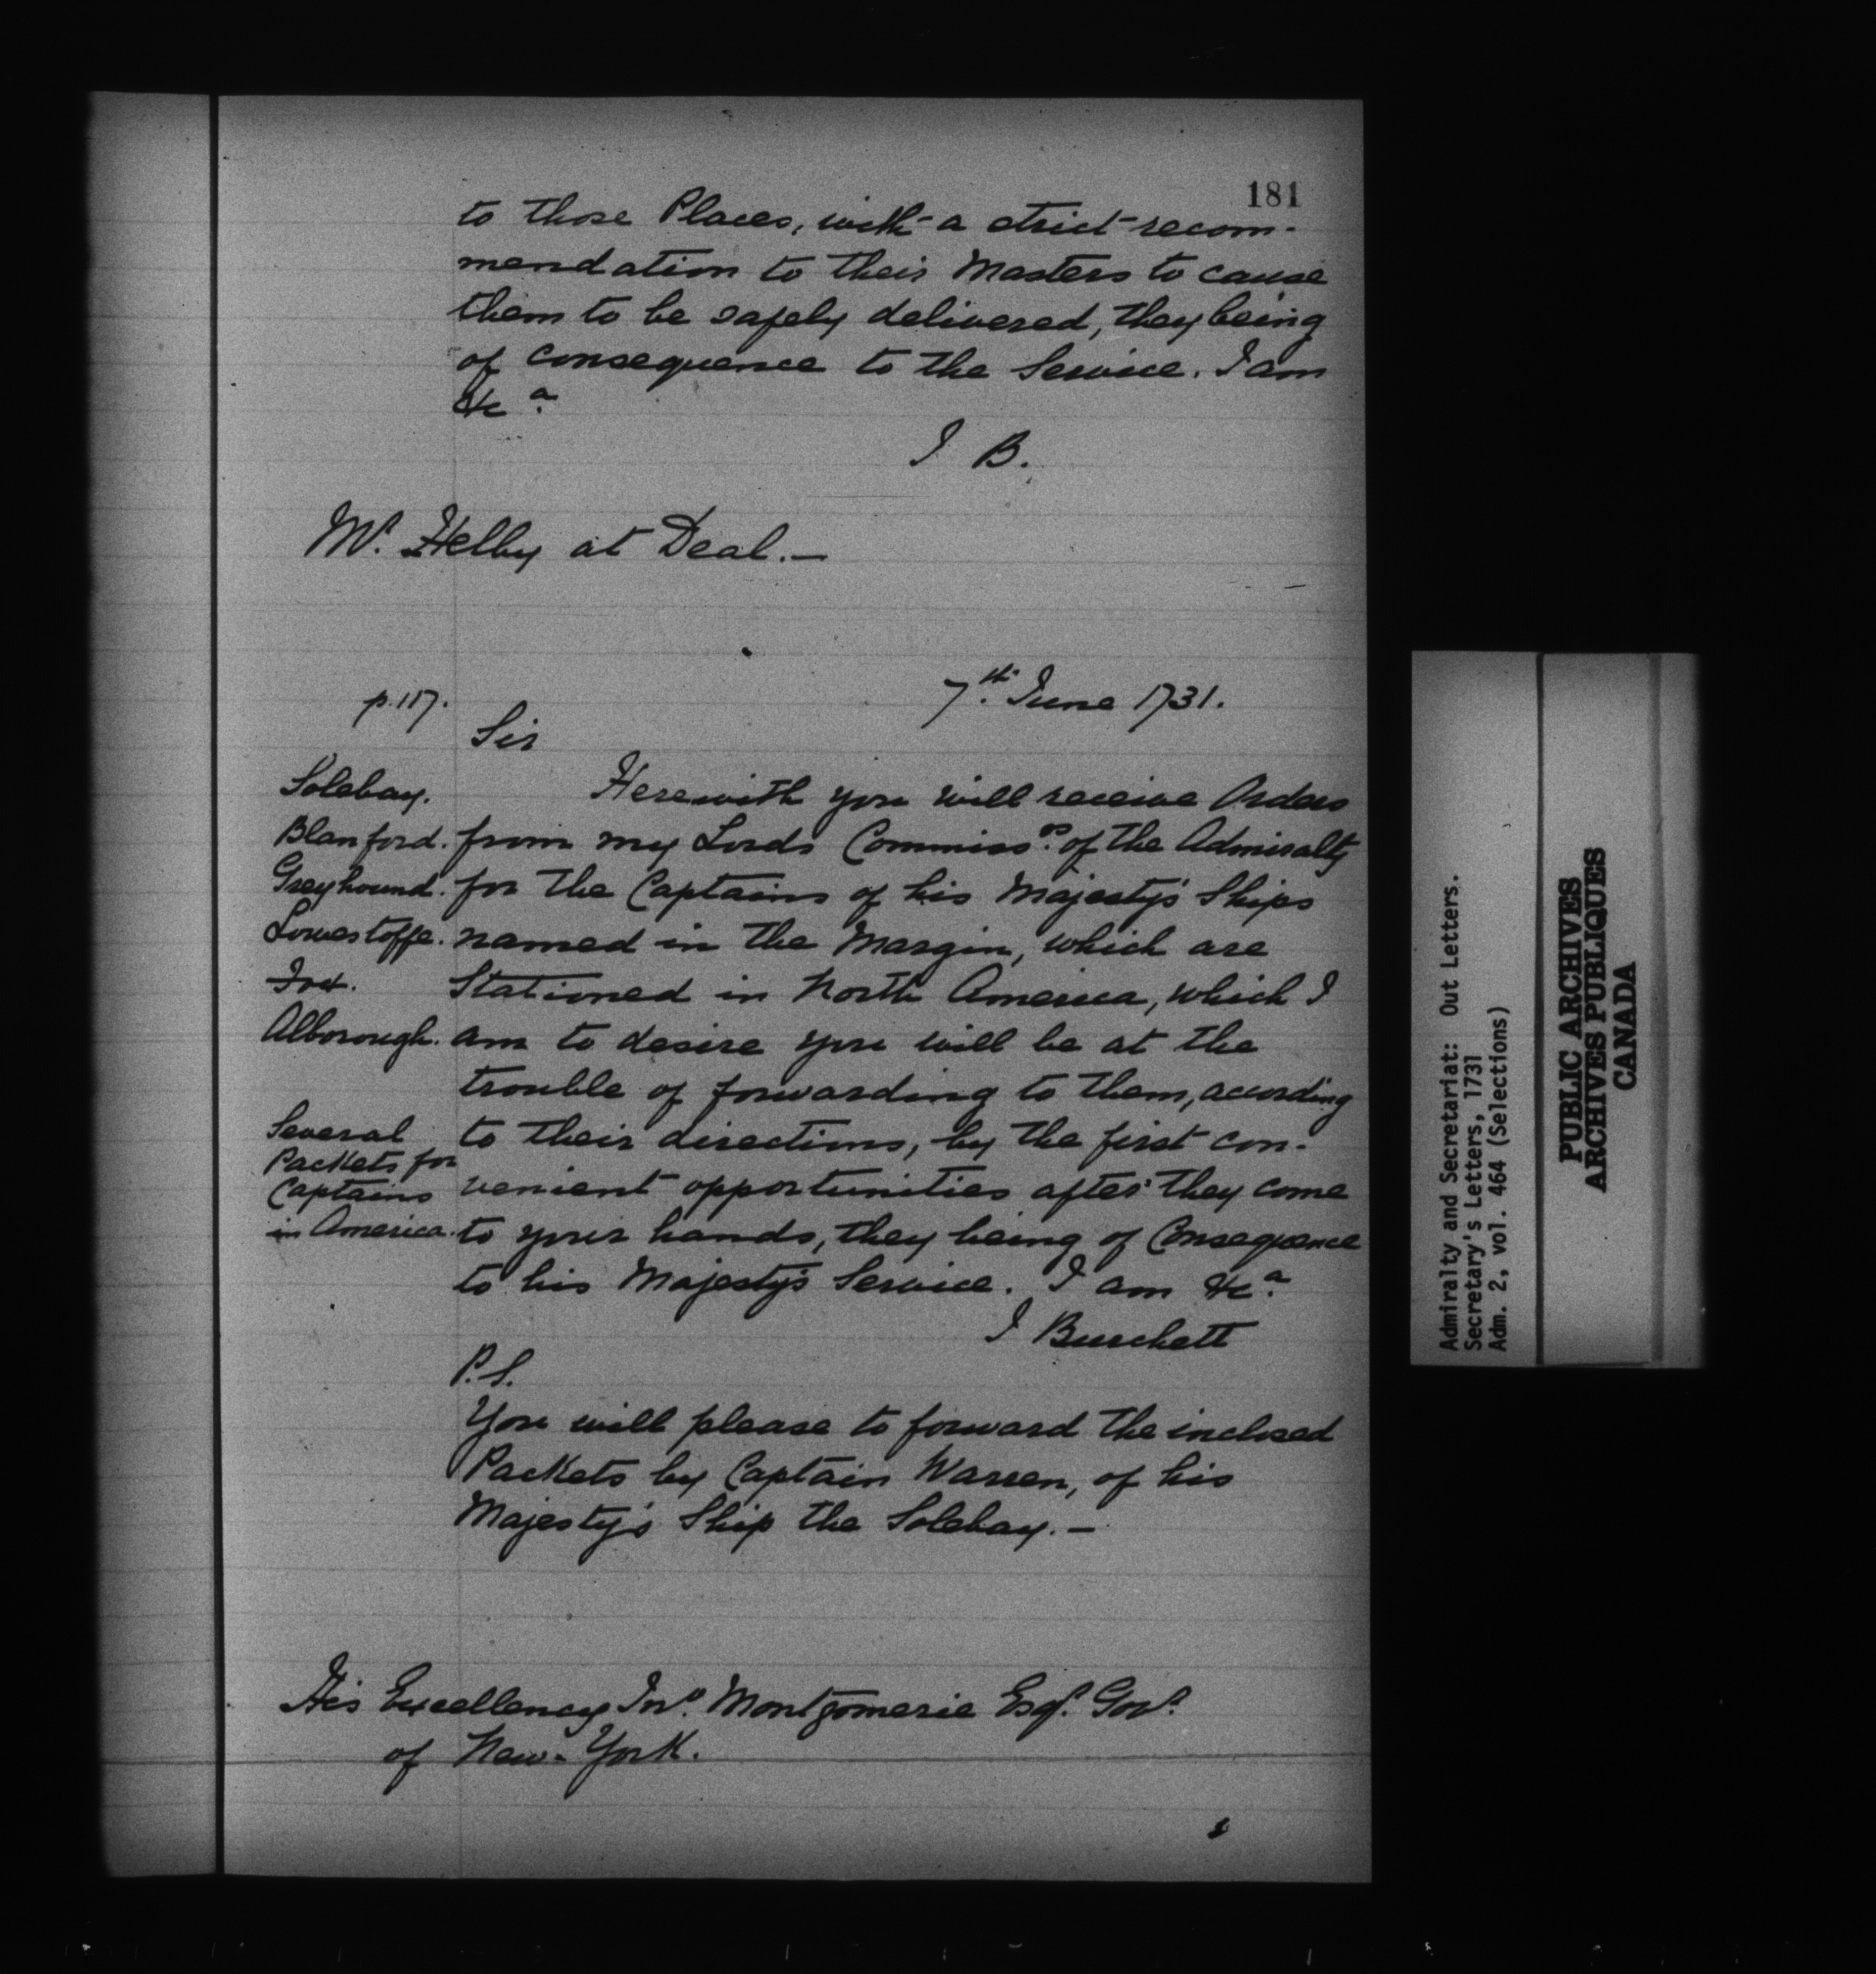 181
to those Places, with a strict recom-
mendation to their Masters to cause
them to be safely delivered, they being
of consequence to the Service. I am
&c a.
I B.
Mr. Helby at Deal.—
p. 117.
7.th June 1731.
Sir
Herewith you will receive Orders
from my Lords Commiss.rs of the Admiralty
for the Captains of his Majesty's Ships
named in the Margin, which are
Stationed in North America, which I
am to desire you will be at the
trouble of forwarding to them, according
to their directions, by the first con-
venient opportunities after they come
to your hands, they being of Consequence
to his Majesty's Service. I am &c.a
I Burchett
Solebay.
Blanford.
Greyhound.
Lowestoffe.
Fox.
Alborough.
Several
Packets for
Captains
in America.
P.S.
You will please to forward the inclosed
Packets by Captain Warren, of his
Majesty's Ship the Solebay.—
His Excellency Jno. Montgomerie Esqr. Govr.
of New-York.
Admiralty and Secretariat: Out Letters.
Secretary's Letters, 1731
Adm. 2, vol. 464 (Selections)
PUBLIC ARCHIVES
ARCHIVES PUBLIQUES
CANADA